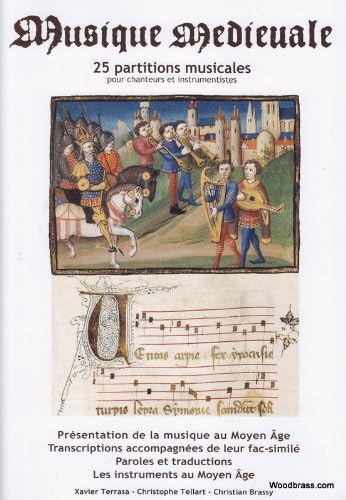 Musique Medievale
25 partitions musicales
pour chanteurs et instrumentistes
Veritas arpie fex ypocrisie
turpis lepra Symonie scandunt soli
Présentation de la musique au Moyen Âge
Transcriptions accompagnées de leur fac-similé
Paroles et traductions
Les instruments au Moyen Âge
Xavier Terrasa - Christophe Tellart - Christian Brassy
Woodbrass.com